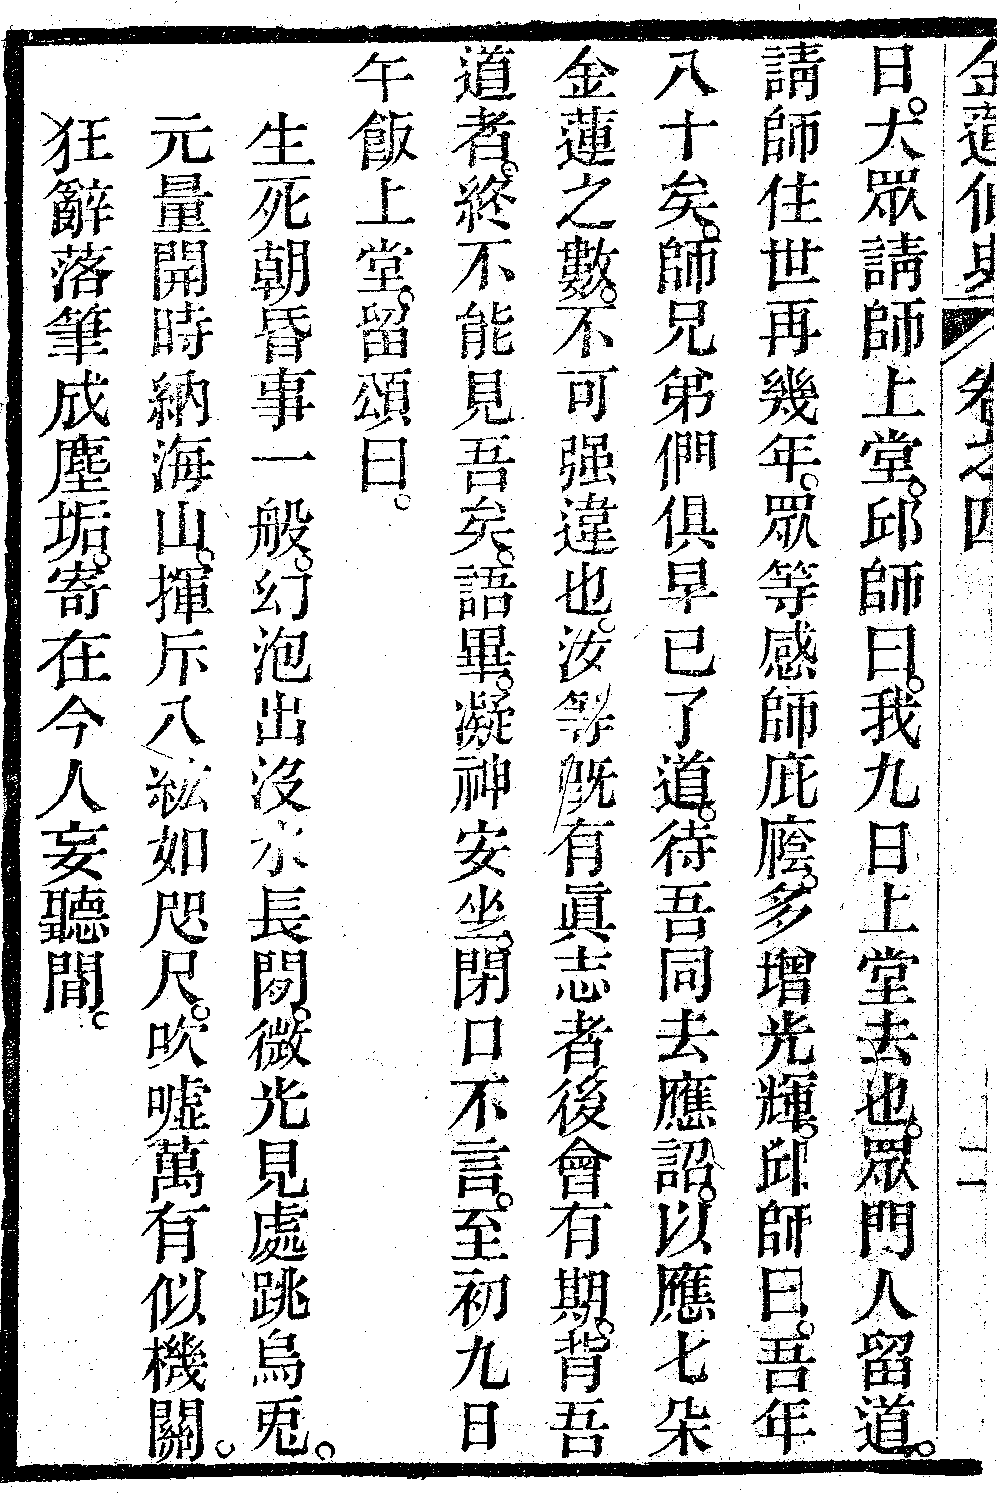 金蓮仙史　卷之四　　　二
曰。大眾請師上堂。邱師曰。我九日上堂去也。眾門人留道。
請師住世再幾年。眾等感師庇廕。多增光輝。邱師曰。吾年
八十矣。師兄弟們俱早已了道。待吾同去應詔。以應七朵
金蓮之數。不可强違也。汝等既有眞志者後會有期。背吾
道者。終不能見吾矣。語畢。凝神安坐。閉口不言。至初九日
午飯上堂。留頌曰。
生死朝昏事一般。幻泡出沒水長閒。微光見處跳烏兎。
元量開時納海山。揮斥八紘如咫尺。吹噓萬有似機關。
狂辭落筆成塵垢。寄在今人妄聽間。